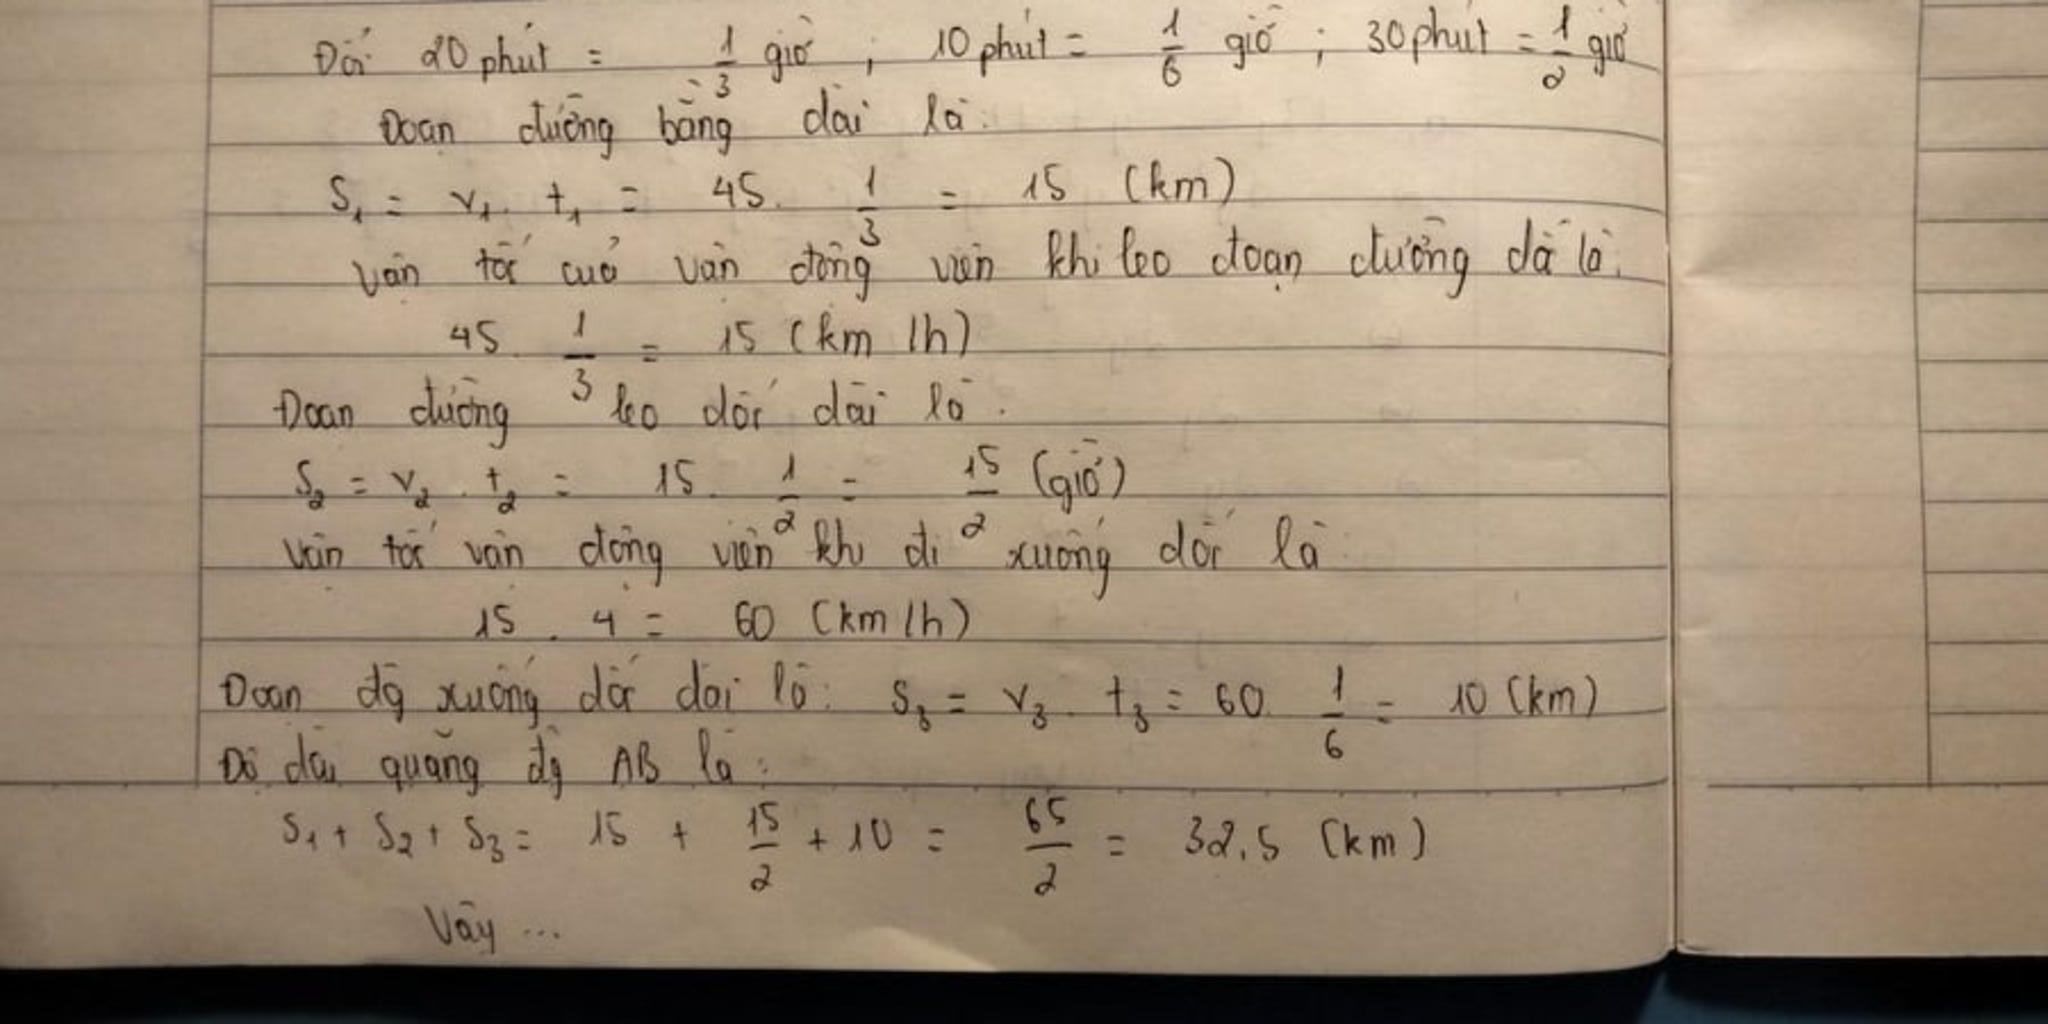 Đổi 20 phút = 1/3 giờ ; 10 phút = 1/6 giờ ; 30 phút = 1/2 giờ
Đoạn đường bằng dài là:
S₁ = v₁ . t₁ = 45 . 1/3 = 15 (km)
Vận tốc của vận động viên khi leo đoạn đường dố là:
45 . 1/3 = 15 (km/h)
Đoạn đường leo dốc dài là:
S₂ = v₂ . t₂ = 15 . 1/2 = 15/2 (giờ)
Vận tốc vận động viên khi đi xuống dốc là:
15 . 4 = 60 (km/h)
Đoạn đg xuống dốc dài là: S₃ = v₃ . t₃ = 60 . 1/6 = 10 (km)
Độ dài quãng đg AB là:
S₁ + S₂ + S₃ = 15 + 15/2 + 10 = 65/2 = 32,5 (km)
Vậy ...